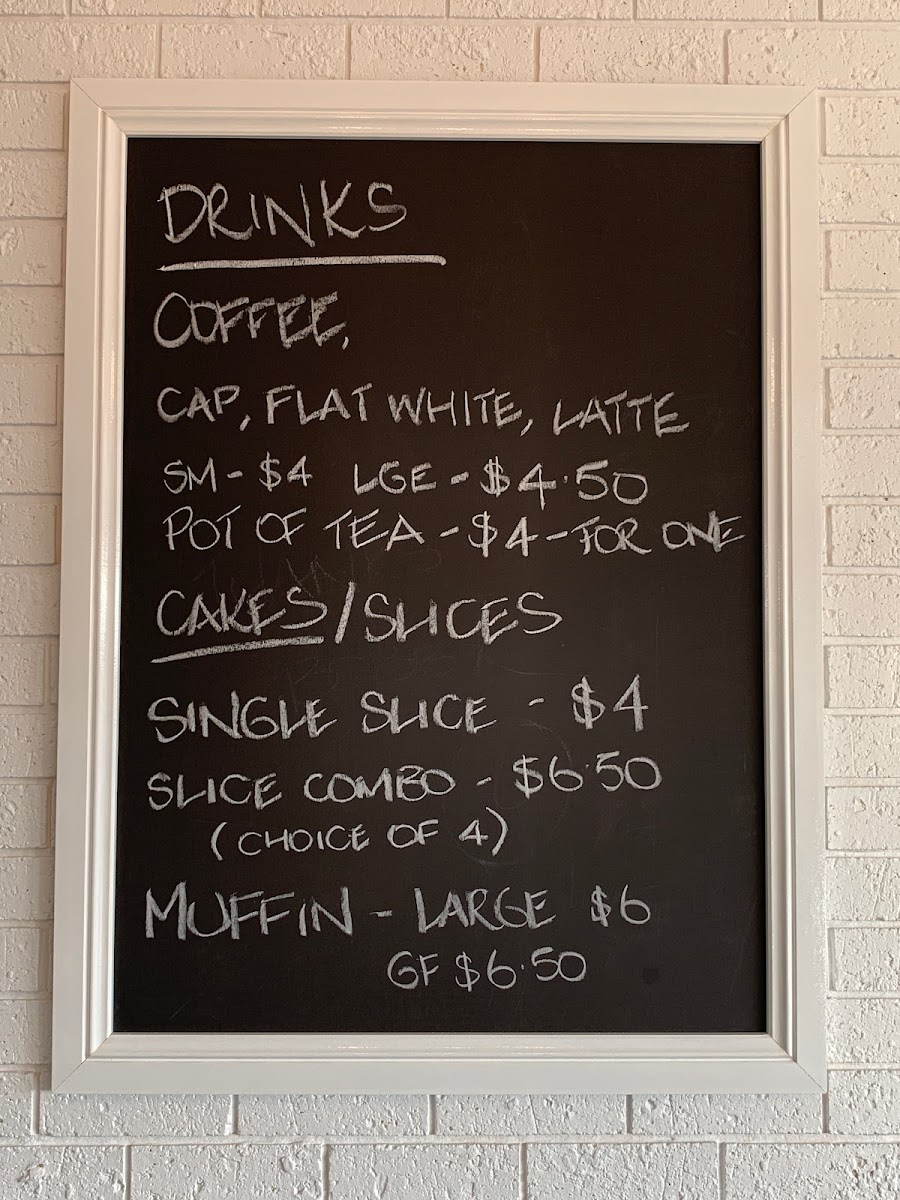 DRINKS
COFFEE,
CAP, FLAT WHITE, LATTE
SM - $4 LGE - $4.50
POT OF TEA - $4 - FOR ONE
CAKES/SLICES
SINGLE SLICE - $4
SLICE COMBO - $6.50
(CHOICE OF 4)
MUFFIN - LARGE $6
GF $6.50